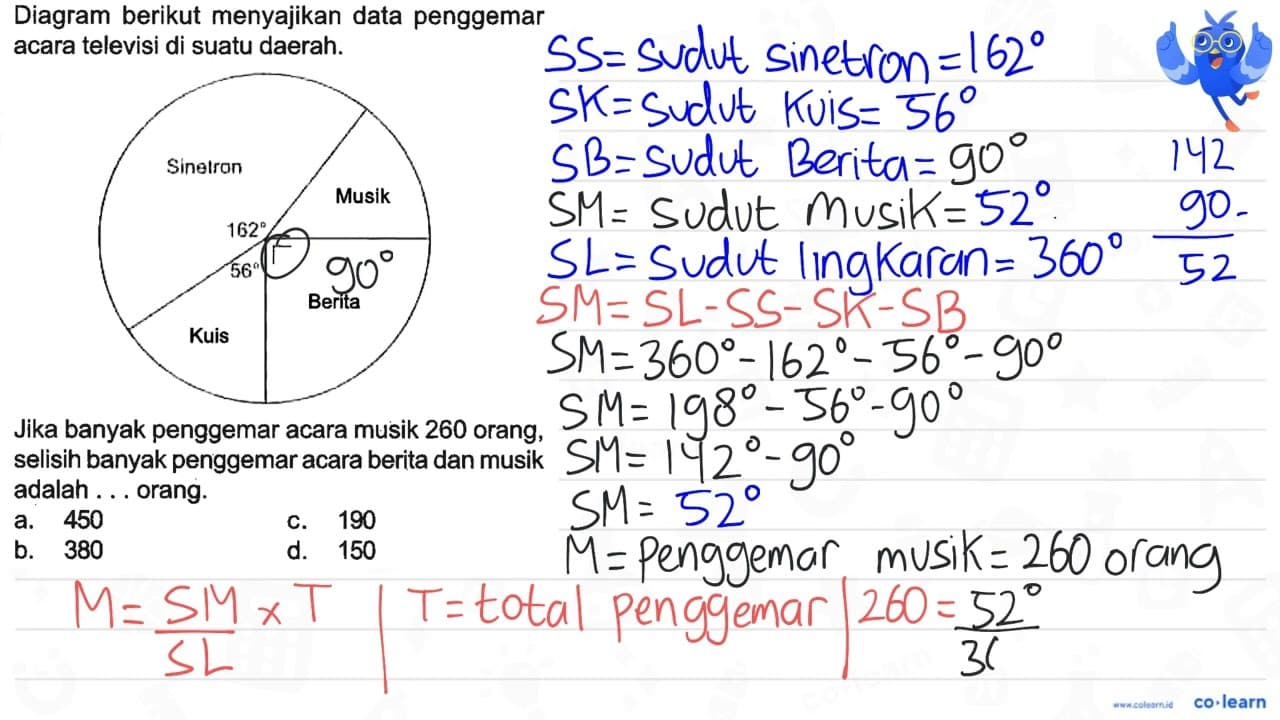 Diagram berikut menyajikan data penggemar
acara televisi di suatu daerah.
Sinetron
Musik
162°
56°
90°
Berita
Kuis
Jika banyak penggemar acara musik 260 orang,
selisih banyak penggemar acara berita dan musik
adalah . . . orang.
a. 450
c. 190
b. 380
d. 150
SS= Sudut Sinetron = 162°
SK= Sudut Kuis= 56°
SB= Sudut Berita= 90°
SM= Sudut Musik= 52°
SL= Sudut lingkaran= 360°
142
90-
52
SM= SL-SS-SK-SB
SM= 360°-162°-56°-90°
SM= 198°-56°-90°
SM= 142°-90°
SM= 52°
M= Penggemar musik= 260 orang
M= SM/SL x T | T= total penggemar | 260= 52°/36
www.colearn.id
co·learn